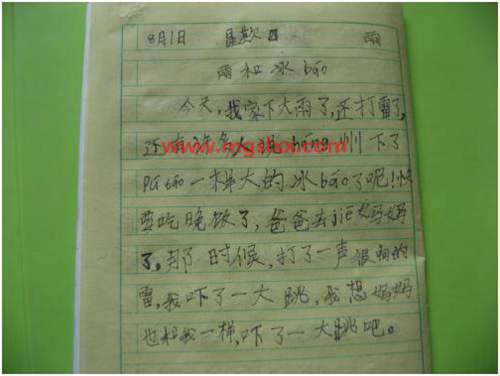 8月1日 星期四 雨
雨和冰bāo
今天,我家下大雨了,还打雷了,
还有许多人说háng州下了
pú táo一样大的冰bāo了呢!快
要吃晚饭了,爸爸去jiē妈妈
了,那时候,打了一声很响的
雷,我吓了一大跳,我想妈妈
也和我一样,吓了一大跳吧。